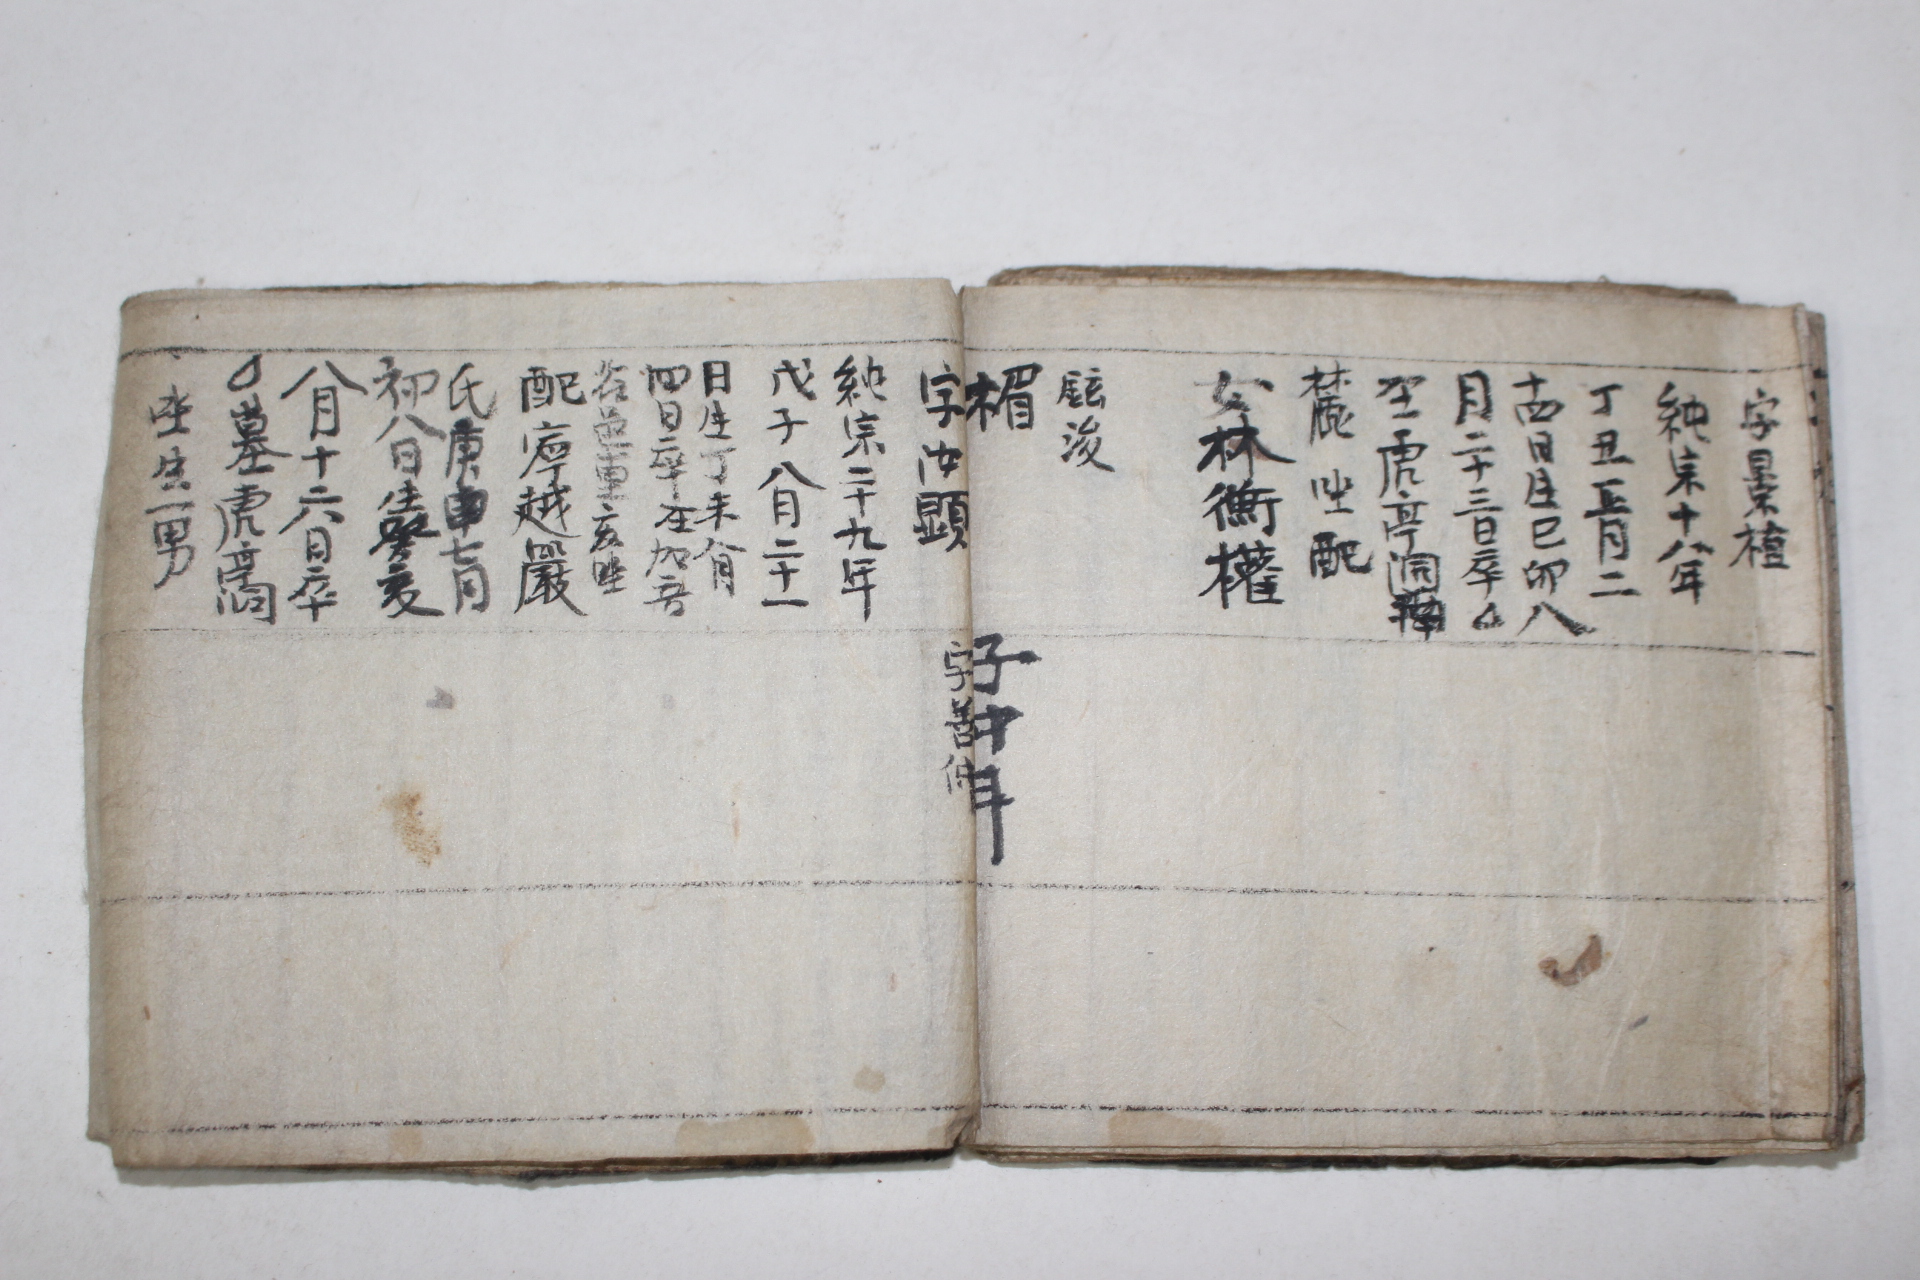 字景植
純宗十八年
丁丑正月二
十四日生己卯八
月二十三日卒
虎亭洞
麓 坐 配
女林衡權
鉉浚
楣
子
字汝顯
字善仲
純宗二十九年
戊子八月二十一
日生丁未
四日卒
亥坐
配寧越嚴
氏庚申七月
初八日生
八月十六日卒
墓虎亭洞
坐生二男